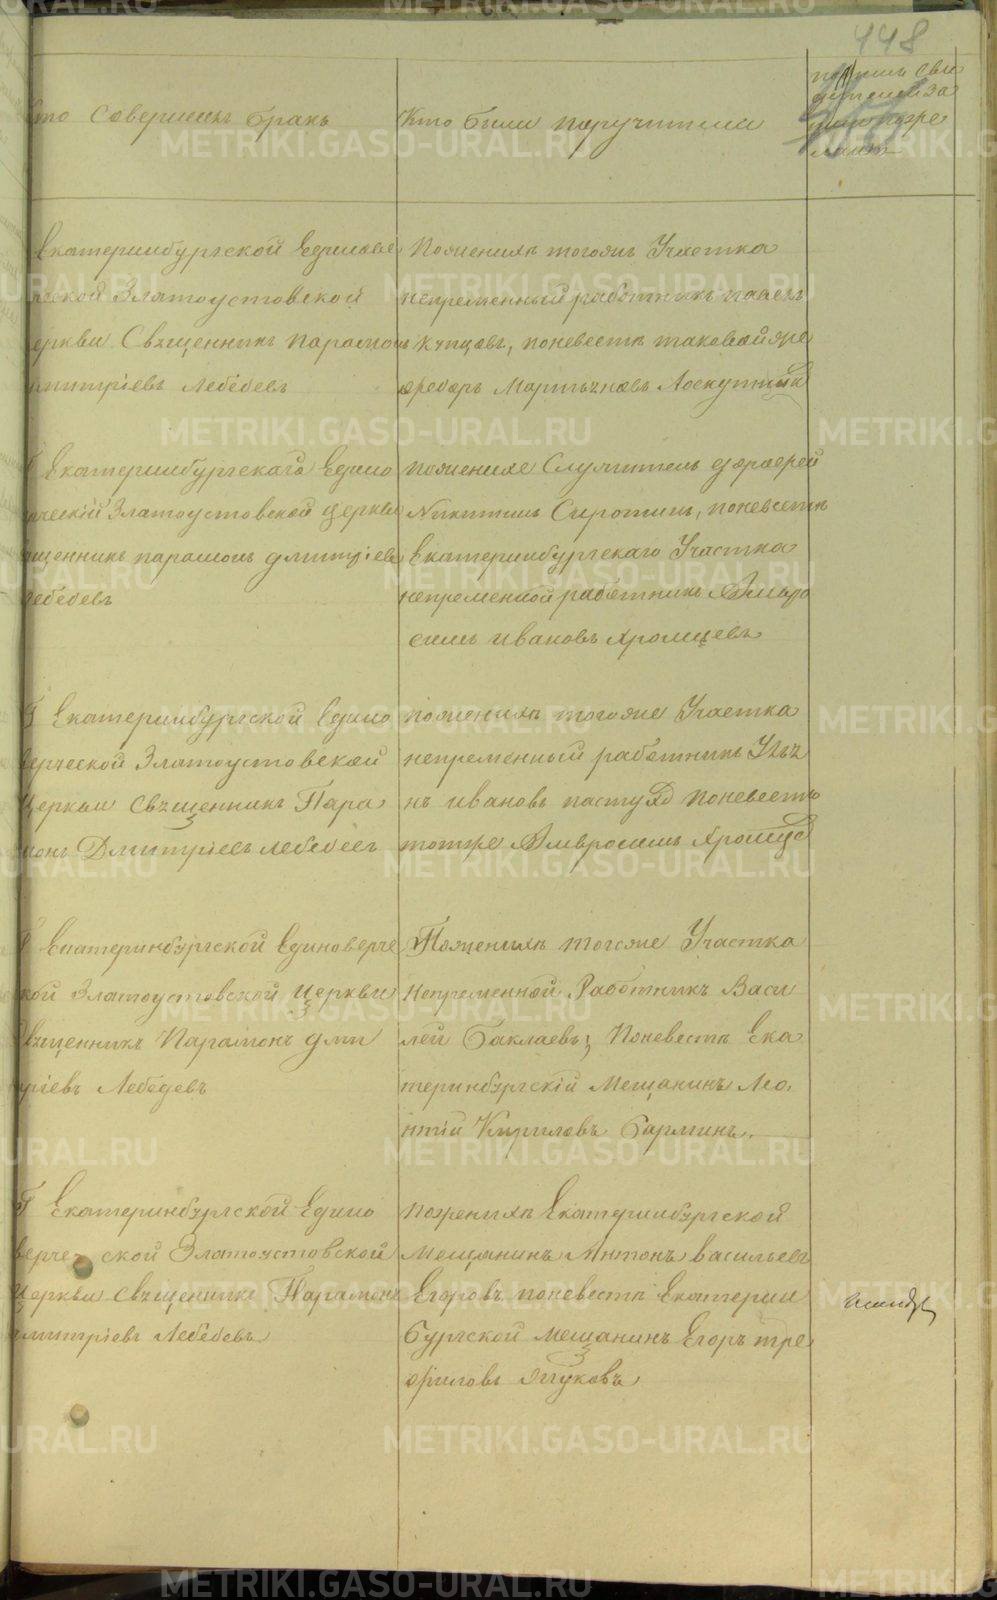 448
Кто Совершилъ бракъ
Кто были поручители
Екатеринбургской Единове
рческой Златоустовской
церкви Священникъ Парамонъ
дмитріевъ Лебедевъ
Поженихѣ тогожъ Участка
непременный работникъ павелъ
Купцовъ, поневестѣ таковойже
Мартыновъ Лоскутовъ
Екатеринбургскаго Едино
верческій Златоустовской церкви
священникъ парамонъ дмитріевъ
Лебедевъ
поженихе Служитель
Никитинъ Сиротинъ, поневестѣ
Екатеринбургскаго Участка
непременной работникъ Амвро
симъ ивановъ Хромцевъ
Г Екатеринбургской Едино
верческой Златоустовской
Церкви Священникъ Пара
монъ Дмитріевъ Лебедевъ
поженихѣ тогоже Участка
непременный работникъ
ивановъ пастухъ поневестѣ
тотже Амвросимъ Хромцовъ
Г Екатеринбургской Единоверче
ской Златоустовской Церкви
Священникъ Парамонъ дми
тріевъ Лебедевъ
Поженихѣ тогоже Участка
Непременной Работникъ Васи
лей Баклаевъ; Поневестѣ Ека
теринбургскій Мещанинъ Лео,
нтій Кириловъ Барминъ.
Г Екатеринбургской Едино
верче ской Златоустовской
Церкви Священникъ Парамонъ
дмитріевъ Лебедевъ
поженихѣ Екатеринбургской
Мещанинъ Антонъ васильевъ
Егоровъ поневестѣ Екатерин
бургской мещанинъ Егоръ тре
филовъ Жуковъ
METRIKI.GASO-URAL.RU